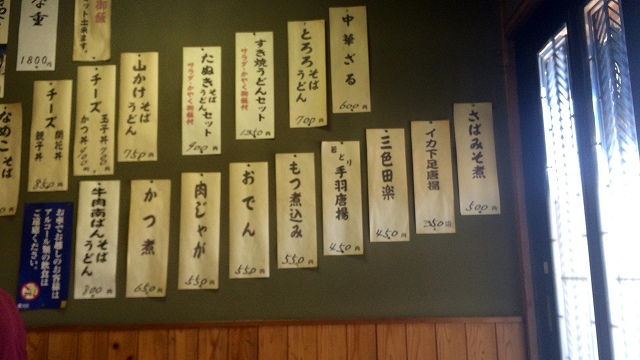 中華ざる
600円
とろろそばうどん
700円
すき焼うどんセット
サラダ・かやく御飯付
たぬきそばうどんセット
サラダ・かやく御飯付
900円
山かけそばうどん
750円
チーズ玉子丼
かつ丼
チーズ開花丼
親子丼
850円
な重
1800円
御飯
ット出来ます。
さばみそ煮
500円
イカ下足唐揚
350円
三色田楽
450円
若どり手羽唐揚
450円
もつ煮込み
550円
おでん
550円
肉じゃが
550円
かつ煮
650円
牛肉南ばんそばうどん
800円
お車でお越しのお客様は
アルコール類の飲食は
ご遠慮ください。
なめこそば